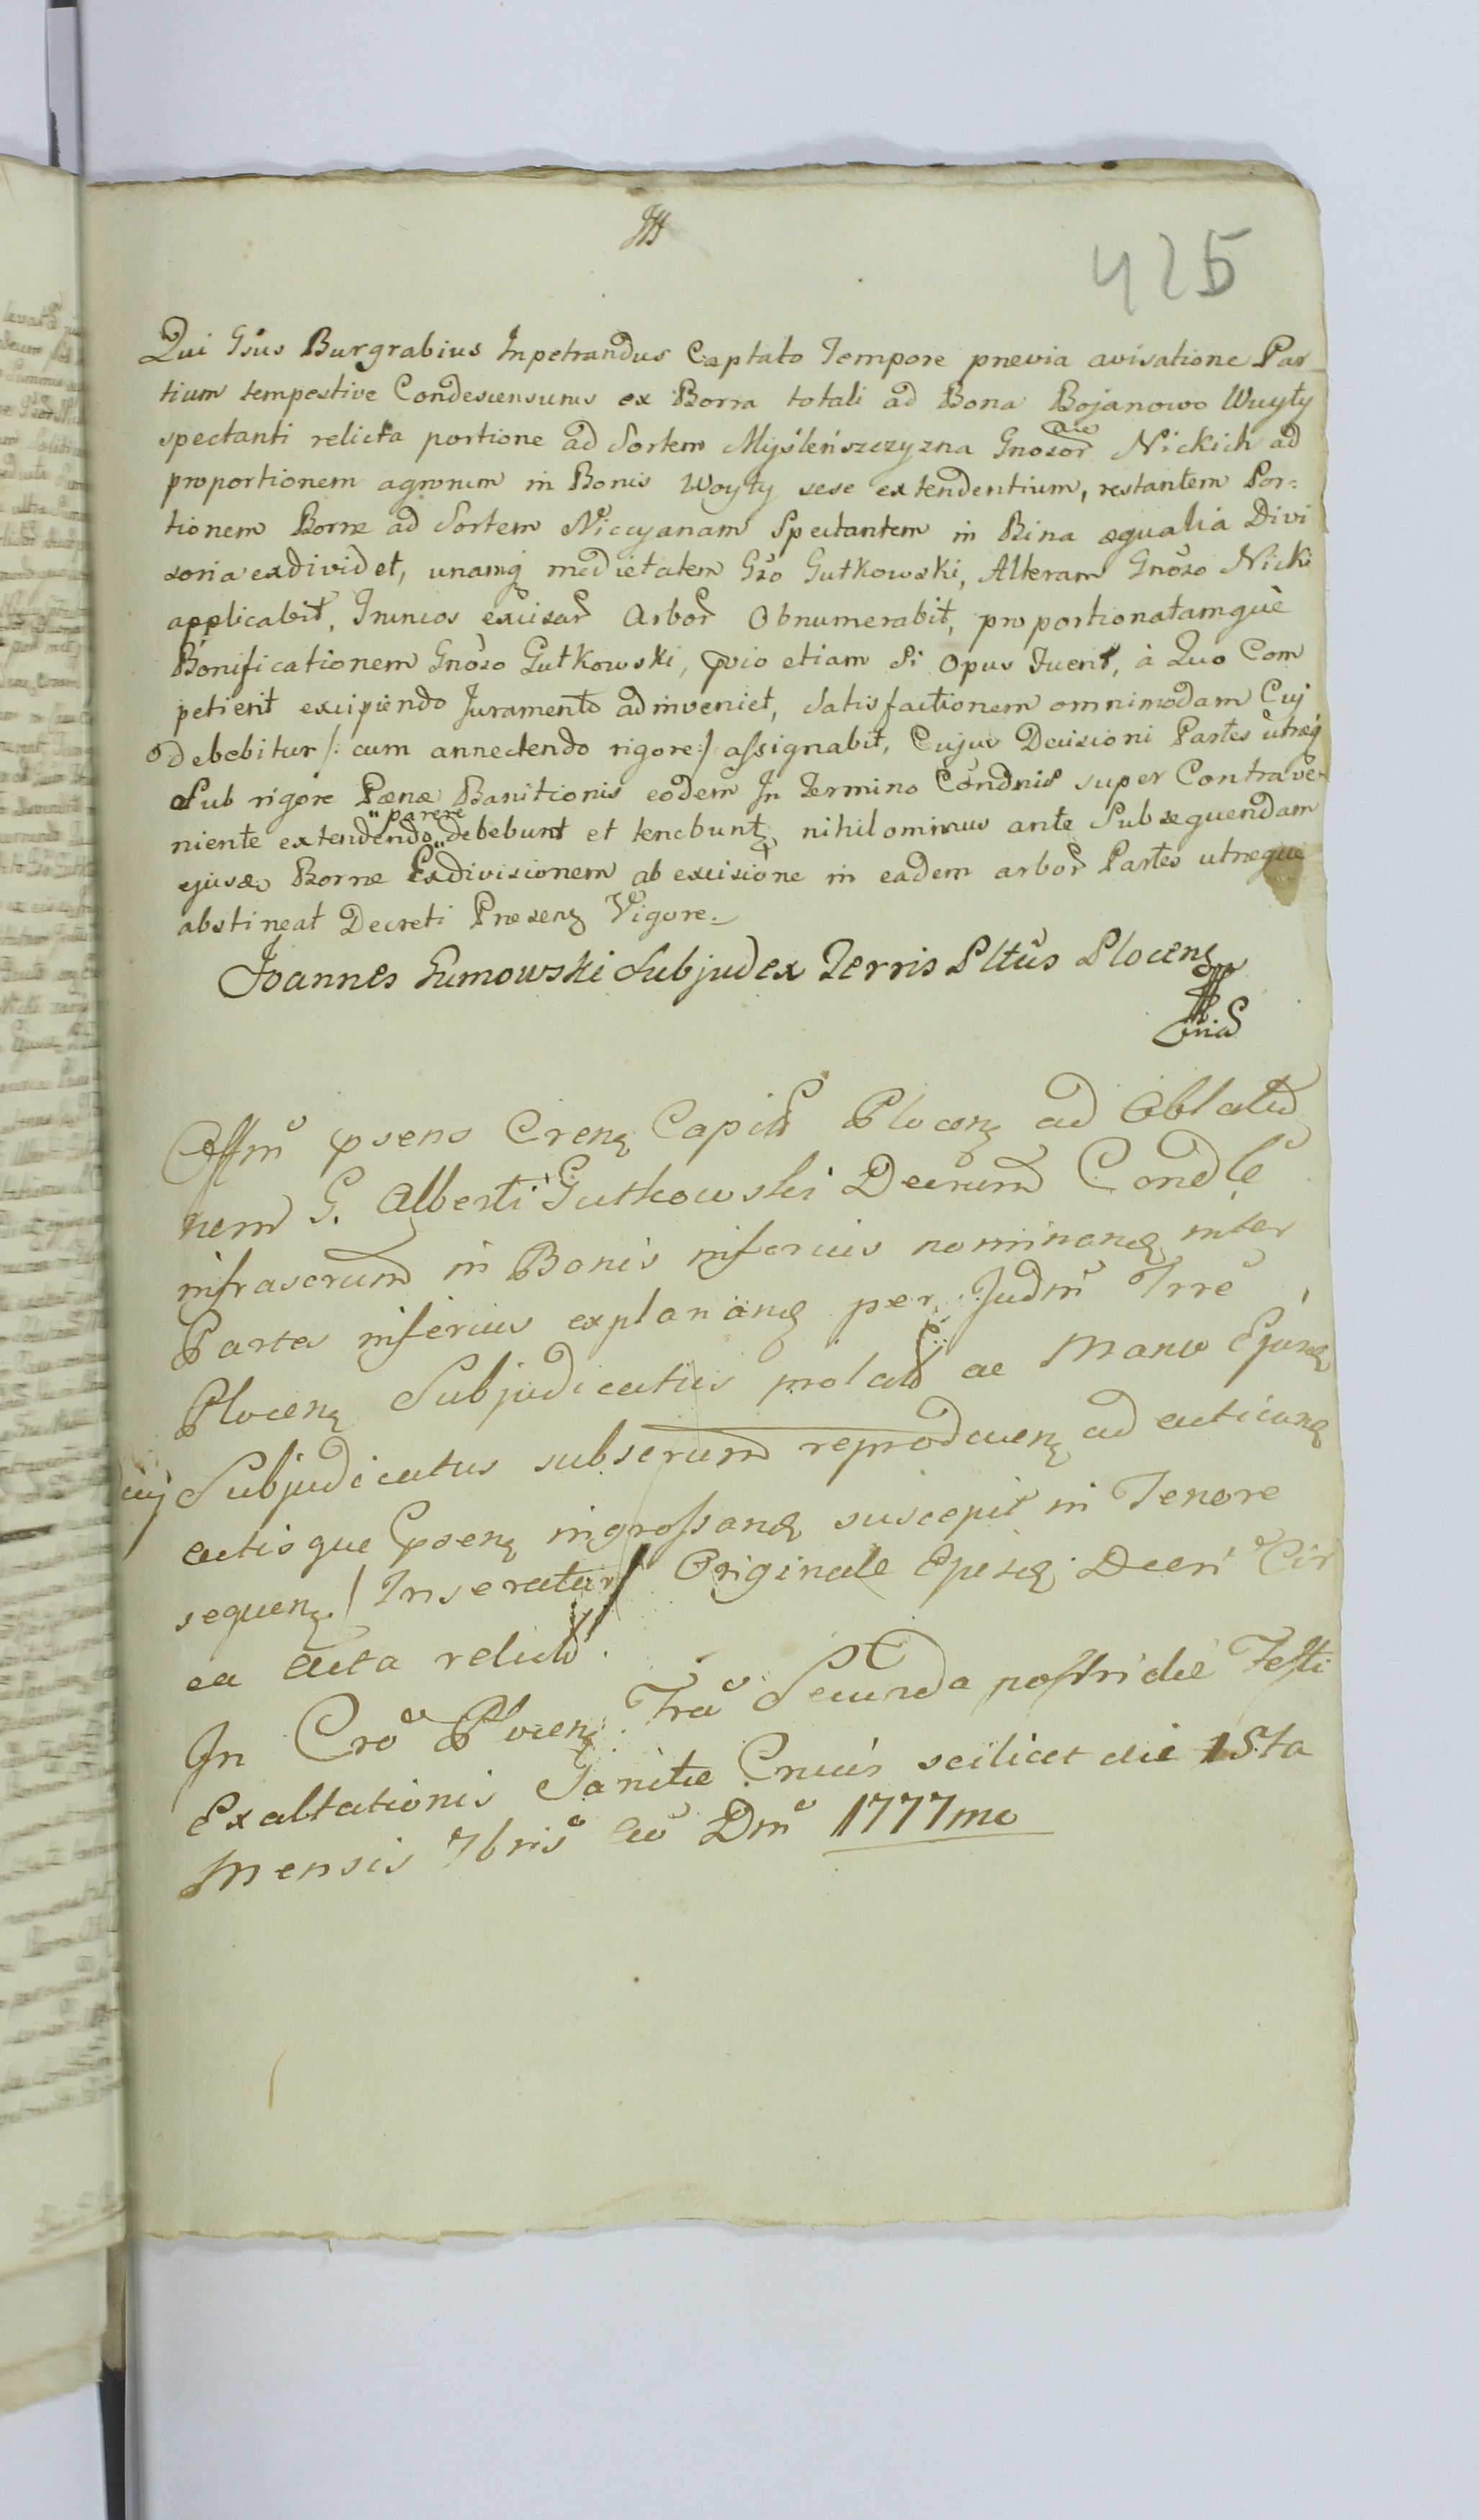 425
Qui Gsus Burgrabius Inpetrandus Captato Tempore prævia avisatione Par
tium tempestive Condescensurus ex Borra totali ad Bona Bojanowo Wuyty
spectanti relicta portione ad Sortem Myśleńszczyzna Gnosor Nickich ad
proportionem agrorum in Bonis Woyty sese extendentium, restantem Por=
tionem Borræ ad Sortem Niccyanam Spectantem in Bina æqualia Divi
soria exdividet, unamq medietatem Gso Gutkowski, Alteram Gnoso Nicki
applicabit, Truncos excisar Arbor Obnumerabit, proportionatamque
Bonificationem Gnoso Gutkowski, prvio etiam Si Opus Fuerit, à Quo Com
petierit excipiendo Juramento adinveniet, Satisfactionem omnimodam Cuj
debebitur /: cum annectendo rigore :/ assignabit, Cujus Decisioni Partes utræq
Sub rigore Pænæ Banitionis eodem In Termino Condnis super Contrave-
niente extendendo "parere" debebunt et tenebunt, nihilominus ante Subsequendam
ejusd Borræ Exdivisionem ab excisione in eadem arbor Partes utræque
abstineat Decreti Præsens Vigore.
Joannes Gumowski Subjudex Terris Pltus Plocens
Offm psens Crens Capit Plocens ad Oblato
nem G. Alberti Gutkowski Decrum Condle
infrascrum in Bonis inferius nominand inter
Partes inferius explanand per Judm Trre
Plocens Subjudicatus prolat ac Manu Ejusd
Subjudicatus subscrum reproducens ad acticand
actisque psens ingrossand suscepit in Tenore
sequens / Inseratur / Originale Ejusd Decri Cir
ca Acta relict
In Cro Plocens Fra Secunda postridie Festi
Exaltationis Sanctæ Crucis scilicet die 15ta
Mensis 7bris Ao Dni 1777mo